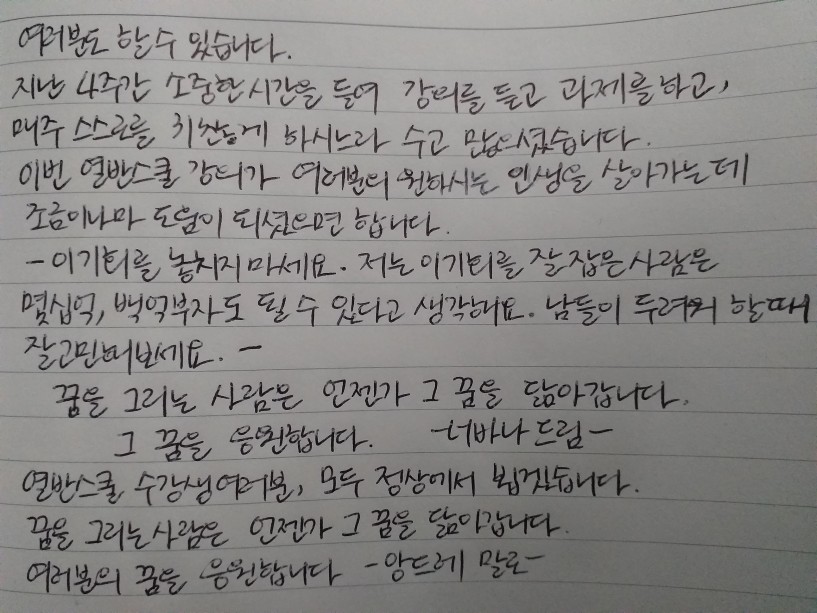 여러분도 할 수 있습니다.
지난 4주간 소중한 시간을 들여 강의를 듣고 과제를 하고,
매주 스스로를 키친하게 하시느라 수고 많으셨습니다.
이번 열반스쿨 강의가 여러분의 원하시는 인생을 살아가는데
조금이나마 도움이 되셨으면 합니다.
-이 기회를 놓치지 마세요. 저는 이 기회를 잘 잡은 사람은
몇십억, 백억부자도 될 수 있다고 생각해요. 남들이 두려워 할때
잘 고민해보세요. -
꿈을 그리는 사람은 언젠가 그 꿈을 닮아갑니다.
그 꿈을 응원합니다. -너바나 드림-
열반스쿨 수강생여러분, 모두 정상에서 뵙겠습니다.
꿈을 그리는 사람은 언젠가 그 꿈을 닮아갑니다.
여러분의 꿈을 응원합니다 -앙드레 말로-